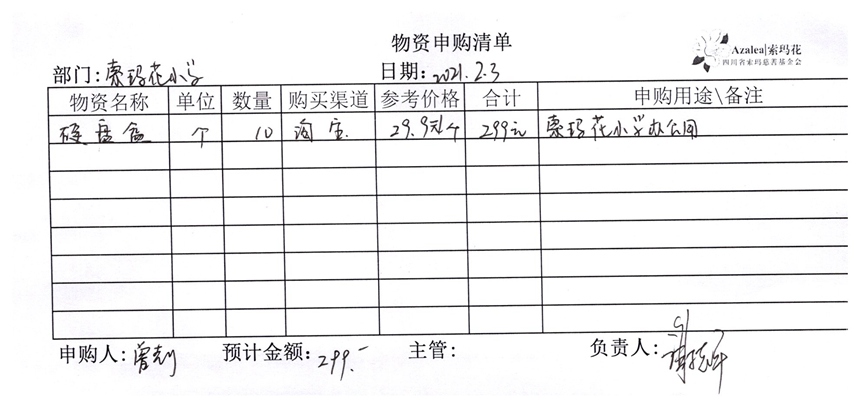 物资申购清单
Azalea|索玛花
四川省索玛慈善基金会
部门:索玛花小学 日期:2021.2.3
物资名称 单位 数量 购买渠道 参考价格 合计 申购用途\备注
硬盘盒 个 10 淘宝 29.9元/个 299元 索玛花小学办公用
申购人: 预计金额:299.- 主管: 负责人: